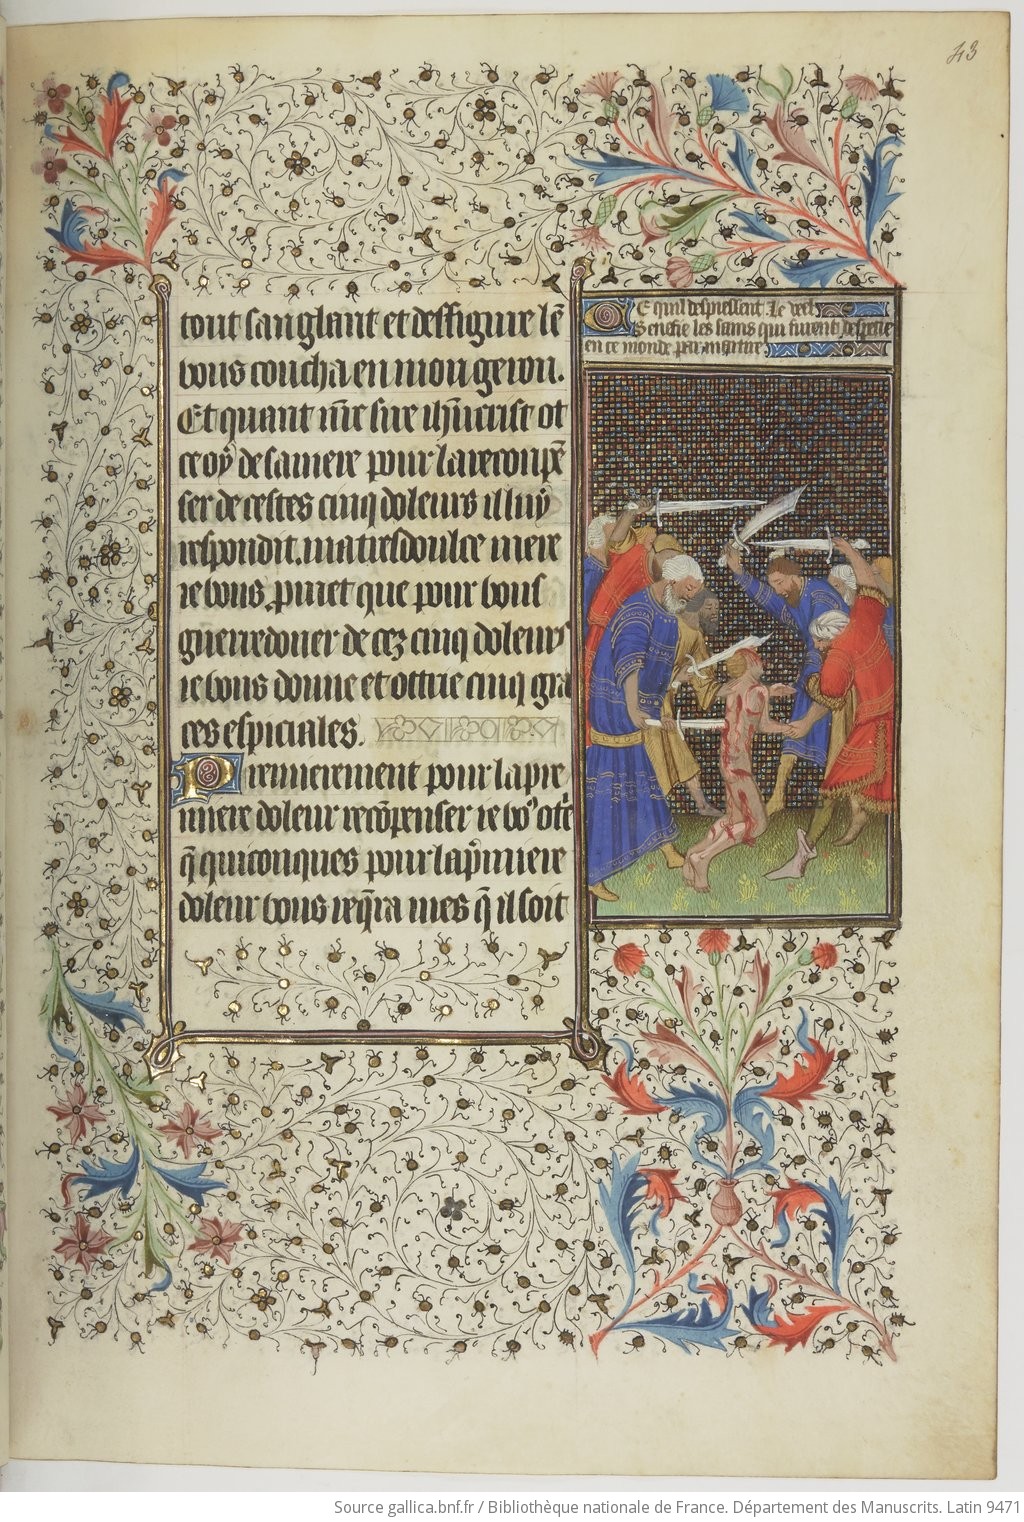 43
tout sanglant et deffigure lē
vous coucha en mon geron.
Et quant nr̄e sire ih̄ucrist ot
ce oÿ de sa mere pour la recōpē
ser de cestes cinq doleurs il luy
respondit. ma tresdoulce mere
ie vous promet que pour vous
guerredoner de cez cinq doleurs
ie vous donne et ottrie cinq gra
ces espiciales.
Premierement pour la pre
miere doleur recōpenser ie vo9 otē
q̄ quiconques pour la p̄miere
doleur vous req̄ra mes q̄ il soit
Ce qu'il despiessent le vel
Senefie les sains qui furent despecie
en ce monde par martire
Source gallica.bnf.fr / Bibliothèque nationale de France. Département des Manuscrits. Latin 9471